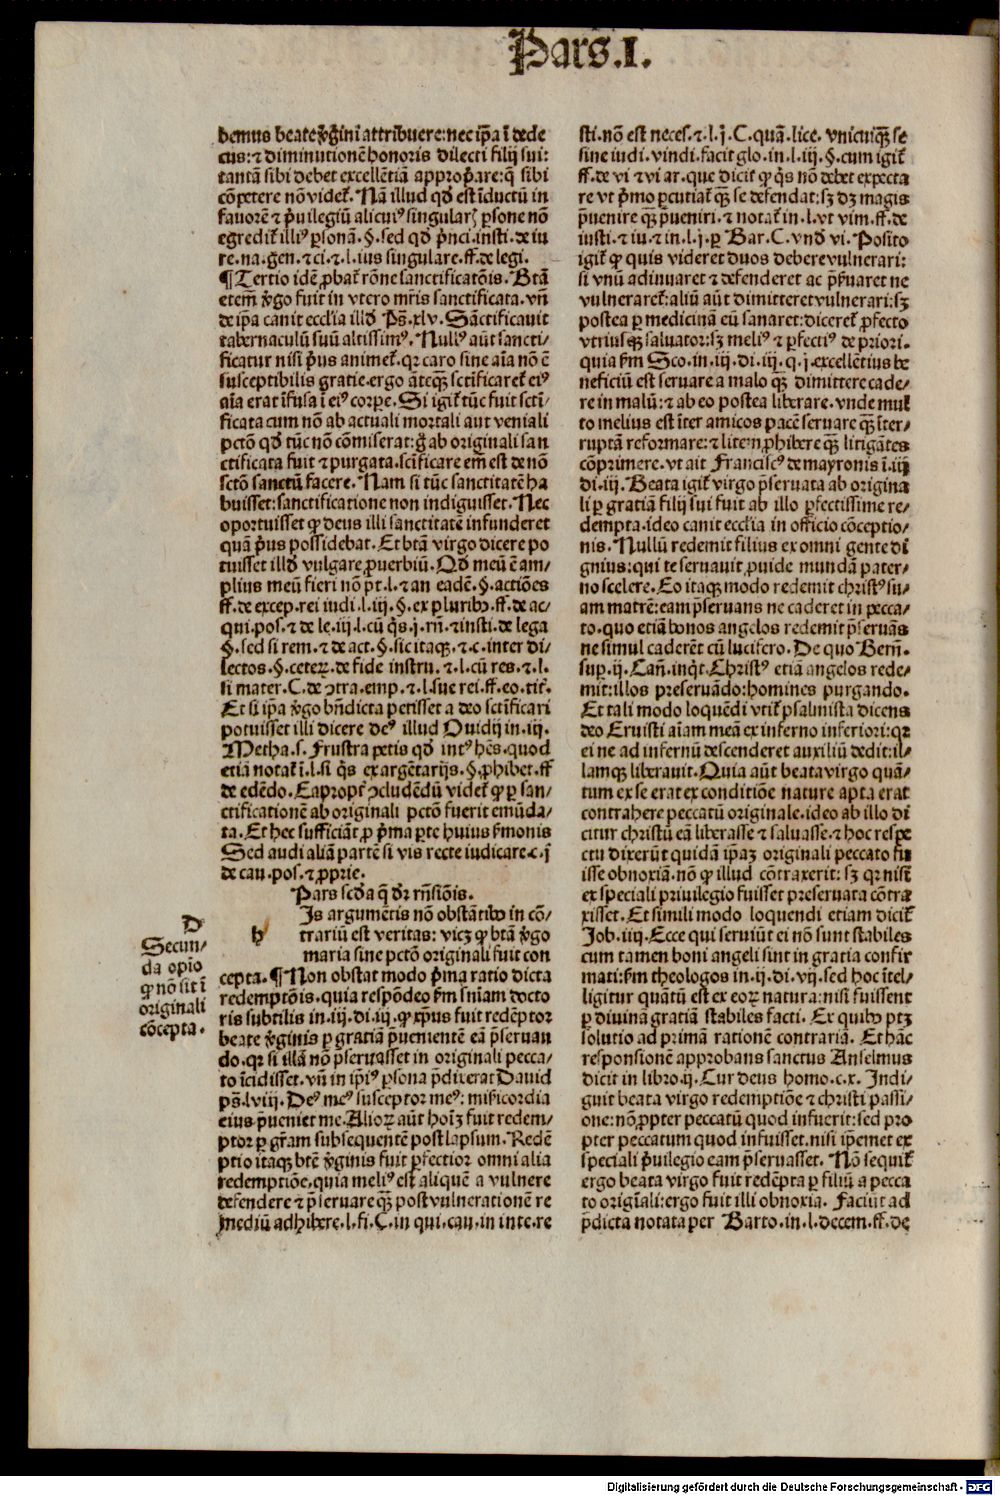 Pars.I.
bemus beate v̓gini attribuere: nec ip̄a ī dede
cus: ⁊ diminutionē honoris dilecti filij sui:
tantā sibi debet excellētiā appropare: q̄ sibi
cōpetere nō videt᷑. Nā illud qd̄ est īductū in
fauorē ⁊ p̓uilegiū alicuiꝰ singularꝭ ꝑsone nō
egredit᷑ illiꝰ ꝑsonā.§.sed qd̄ p̓nci.insti.de iu
re.na.gen.⁊ ci.⁊.l.ius singulare.ff.de legi.
¶ Tertio idē ꝓbat᷑ rōne sanctificatōis. Btā
etem̄ v̓go fuit in vtero mr̄is sanctificata. vn̄
de ip̄a canit eccl̄ia illd̄ Ps̄.xlv. Sāctificauit
tabernaculū suū altissimꝰ. Nullꝰ aūt sancti/
ficatur nisi p̓us animet᷑.qr caro sine aīa nō ē
susceptibilis gratie.ergo āteqꝫ sctīficaret᷑ eiꝰ
aīa erat īfusa ī eiꝰ corꝑe. Si igit᷑ tūc fuit sctī/
ficata cum nō ab actuali mortali aut veniali
pctō qd̄ tūc nō cōmiserat: g̊ ab originali san
ctificata fuit ⁊ purgata.sctīficare em̄ est de nō
sctō sanctū facere. Nam si tūc sanctitatē ha
buisset: sanctificatione non indiguisset. Nec
oportuisset ꝙ deus illi sanctitatē infunderet
quā p̓us possidebat. Et btā virgo dicere po
tuisset illd̄ vulgare ꝓuerbiū. Qd̄ meū ē am/
plius meū fieri nōn p̄t.l.⁊ an eadē.§.actiōes
ff.de excep.rei iudi.l.iij.§.ex pluribꝰ.ff.de ac/
qui.pos.⁊ de le.iij.l.cū q̄s.j.rn̄.⁊ insti.de lega
§.sed si rem.⁊ de act.§.sic itaqꝫ.⁊.c.inter di/
lectos.§.ceterꝝ.de fide instru.⁊.l.cū res.⁊.l.
si mater.C.de ꝯtra.emp.⁊.l.sue rei.ff.eo.tit᷑.
Et si ip̄a v̓go bn̄dicta petisset a deo sctīficari
potuisset illi dicere deꝰ illud Ouidij in.iij.
Metha.s. Frustra petis qd̄ intꝰ hēs.quod
etiā notat᷑ ī.l.si q̄s ex argētarijs.§.ꝓhibet.ff
de edēdo. Eapropt᷑ ꝯcludēdū videt᷑ ꝙ ꝑ san/
ctificationē ab originali pctō fuerit emūda/
ta. Et hec sufficiāt ꝓ p̓ma ꝑte huius s̄monis
Sed audi aliā partē si vis recte iudicare.c.j
de cau.pos.⁊ ꝓprie.
Pars scd̄a q̄ dr̄ rn̄siōis.
D
Secun/
da opīo
ꝙ nō sit ī
originali
cōcepta.
h
Is argumētis nō obstātibꝰ in cō/
trariū est veritas: vicꝫ ꝙ btā v̓go
maria sine pctō originali fuit con
cepta. ¶ Non obstat modo p̓ma ratio dicta
redemptōis.quia respōdeo s̄m sn̄iam docto
ris subtilis in.iij.di.iij.ꝙ xp̄us fuit redēptor
beate v̓ginis ꝑ gratiā p̄uenientē eā p̄seruan
do.qr si illā nō p̄seruasset in originali pecca/
to īcidisset. vn̄ in ip̄iꝰ ꝑsona p̄dixerat Dauid
ps̄.lviij. Deꝰ meꝰ susceptor meꝰ: misericordia
eius p̄ueniet me. Alioꝝ aūt hoīꝫ fuit redem/
ptor ꝑ gr̄am subsequentē post lapsum. Redē
ptio itaqꝫ btē v̓ginis fuit ꝑfectior omni alia
redemptiōe.quia meliꝰ est aliquē a vulnere
defendere ⁊ p̄seruare qꝫ post vulnerationē re
mediū adhibere.l.fi.C.in qui.cau.in inte.re
sti.nō est neces.⁊.l.j.C.quā.lice. vnicuiqꝫ se
sine iudi.vindi.facit glo.in.l.iij.§.cum igit᷑
ff.de vi ⁊ vi ar.que dicit ꝙ q̄s nō debet expecta
re vt p̓mo ꝑcutiat᷑ qꝫ se defendat: sꝫ dꝫ magis
p̄uenire qꝫ p̄ueniri.⁊ notat᷑ in.l.vt vim.ff.de
iusti.⁊ iu.⁊ in.l.j.ꝑ Bar.C.vnd̄ vi. Posito
igit᷑ ꝙ quis videret duos debere vulnerari:
si vnū adiuuaret ⁊ defenderet ac p̄seruaret ne
vulneraret᷑: aliū aūt dimitteret vulnerari: sꝫ
postea ꝑ medicinā eū sanaret: diceret᷑ ꝓfecto
vtriusqꝫ saluator: sꝫ meliꝰ ⁊ ꝑfectiꝰ de priori.
quia s̄m Sco.in.iij.di.iij.q.j.excellētius be
neficiū est seruare a malo qꝫ dimittere cade/
re in malū: ⁊ ab eo postea liberare. vnde mul
to melius est īter amicos pacē seruare qꝫ īter/
ruptā reformare: ⁊ litem ꝓhibere qꝫ litigātes
cōprimere. vt ait Franciscꝰ de mayronis ī.iij
di.iij. Beata igit᷑ virgo p̄seruata ab origina
li ꝑ gratiā filij sui fuit ab illo ꝑfectissime re/
dempta.ideo canit eccl̄ia in officio cōceptio/
nis. Nullū redemit filius ex omni gente di
gnius: qui te seruauit ꝓuide mundā pater/
no scelere. Eo itaqꝫ modo redemit christꝰ su/
am matrē: eam p̄seruans ne caderet in pecca/
to.quo etiā bonos angelos redemit p̄seruās
ne simul caderēt cū lucifero. De quo Bern̄.
sup.ij.Can̄.inq̇t. Christꝰ etiā angelos rede/
mit: illos preseruādo: homines purgando.
Et tali modo loquēdi vtit᷑ psalmista dicens
deo Eruisti aīam meā ex inferno inferiori: qr
ei ne ad infernū descenderet auxiliū dedit: il/
lamqꝫ liberauit. Quia aūt beata virgo quā/
tum ex se erat ex conditiōe nature apta erat
contrahere peccatū originale.ideo ab illo di
citur christū eā liberasse ⁊ saluasse.⁊ hoc respe
ctu dixerūt quidā ip̄aꝫ originali peccato fu
isse obnoxiā.nō ꝙ illud cōtraxerit: sꝫ qr nisi
ex speciali priuilegio fuisset preseruata cōtra
xisset. Et simili modo loquendi etiam dicit᷑
Job.iiij. Ecce qui seruiūt ei nō sunt stabiles
cum tamen boni angeli sint in gratia confir
mati: s̄m theologos in.ij.di.vij.sed hoc ītel/
ligitur quātū est ex eoꝝ natura: nisi fuissent
ꝑ diuinā gratiā stabiles facti. Ex quibꝰ ptꝫ
solutio ad primā rationē contrariā. Et hāc
responsionē approbans sanctus Anselmus
dicit in libro.ij. Cur deus homo.c.x. Indi/
guit beata virgo redemptiōe ⁊ christi passi/
one: nō ꝓpter peccatū quod infuerit: sed pro
pter peccatum quod infuisset.nisi ip̄emet ex
speciali p̓uilegio eam p̄seruasset. Nō sequit᷑
ergo beata virgo fuit redēpta ꝑ filiū a pecca
to origīali: ergo fuit illi obnoxia. Faciūt ad
p̄dicta notata per Barto.in.l.decem.ff.de
Digitalisierung gefördert durch die Deutsche Forschungsgemeinschaft - DFG